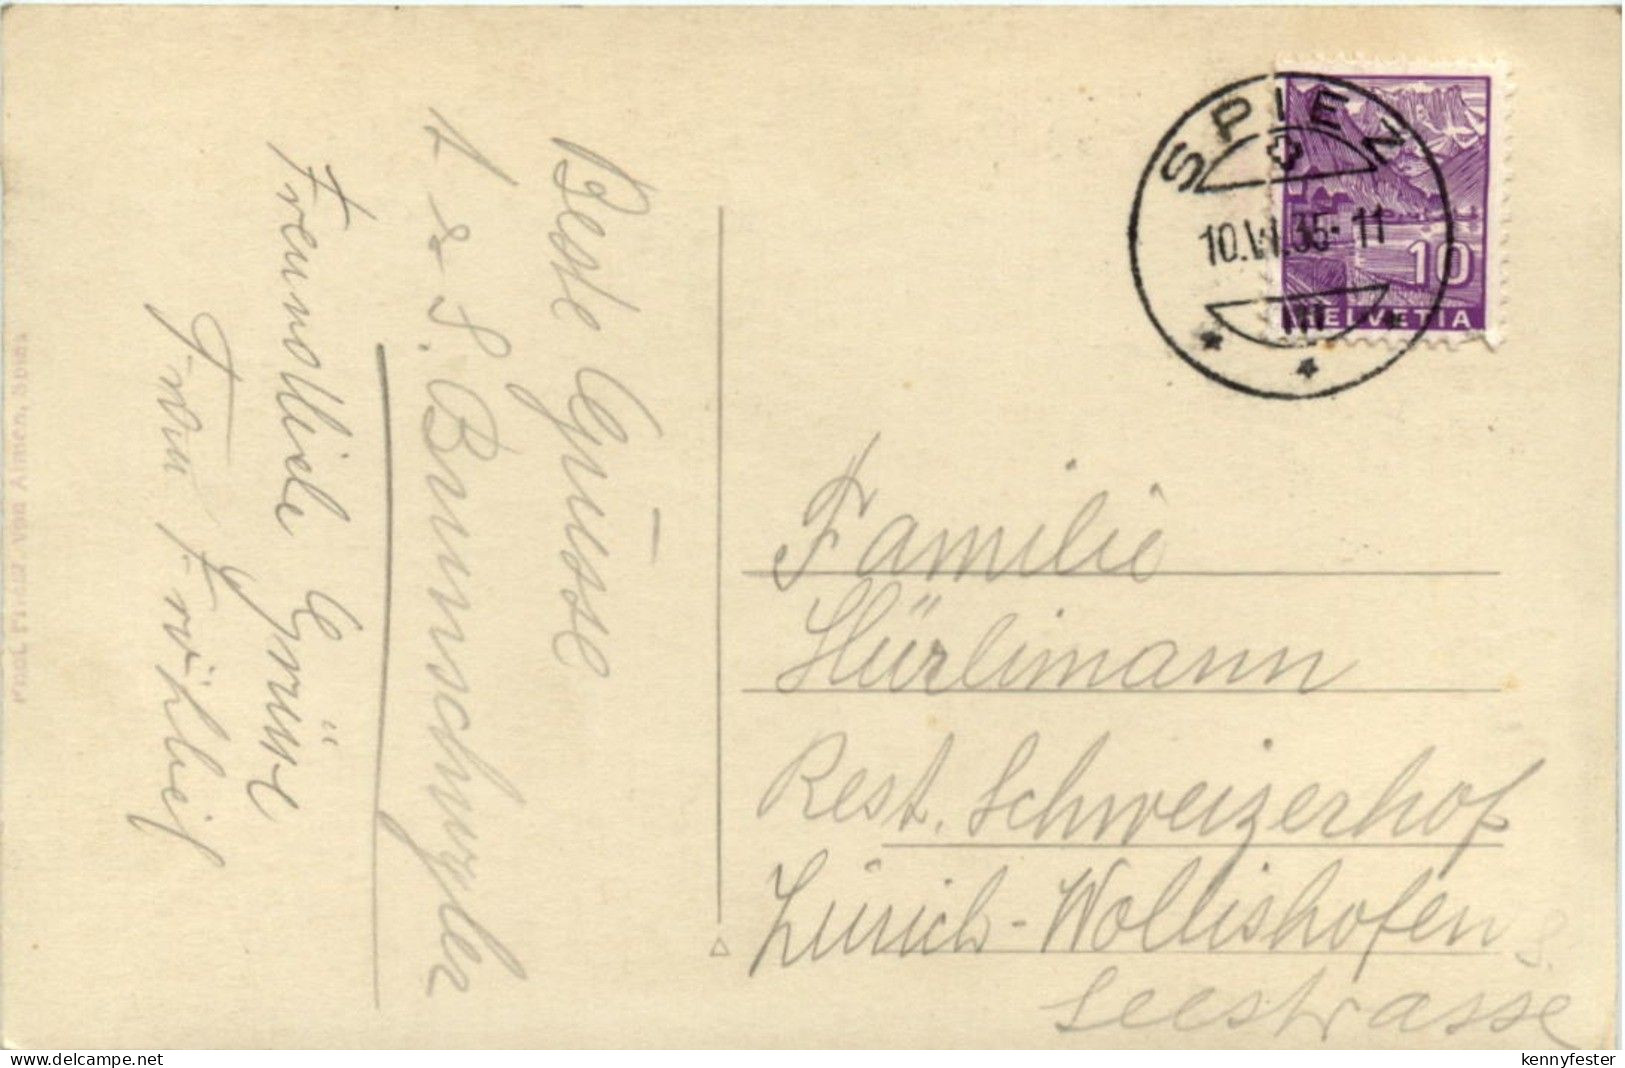 Beste Grüsse
A & S. Brunnschwyler
Freundliche Grüsse
Frau Fröhlich
SPIEZ
10.VI.35-11
10
HELVETIA
Familie
Hürlimann
Rest. Schweizerhof
Zürich-Wollishofen
Seestrasse
von Almen,
kennyfester